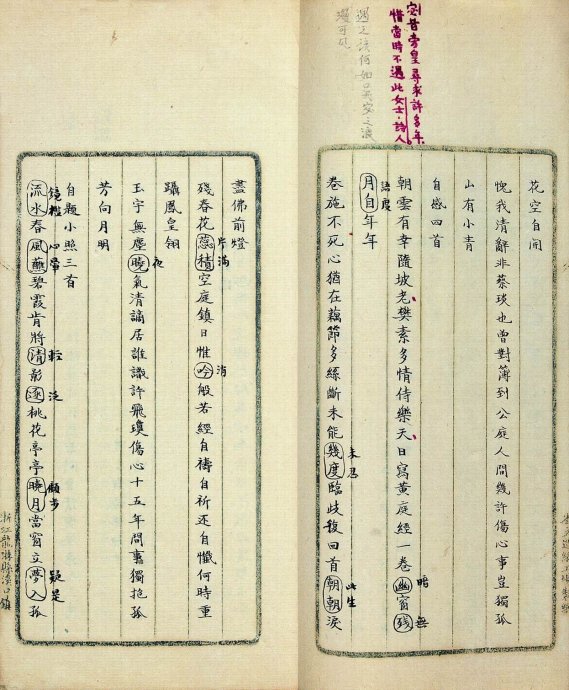 宓昔旁皇尋求許多年
惜當時不遇此女士·詩人
遇之
花空自開
愧我清辭非蔡琰也曾對簿到公庭人間幾許傷心事豈獨孤
山有小青
自感四首
朝雲有幸隨坡老樊素多情侍樂天日寫黃庭經一卷幽窗殘
暗 無
月自年年
誰度
卷施不死心猶在藕節多絲斷未能幾度臨歧復回首朝朝淚
未忍 此生
盡佛前燈
殘春花蕊積空庭鎮日惟吟般若經自禱自祈還自懺何時重
片滿 消
躡鳳皇翎
玉宇無塵曉氣清謫居誰識許飛瓊傷心十五年間事獨抱孤
夜
芳向月明
自題小照三首
鏡檻 心帚 輕 泛 顧步 疑是
流水春風蘸碧霞肯將清影逐桃花亭亭曉月當窗立夢入孤
浙江龍游縣溪口鎮